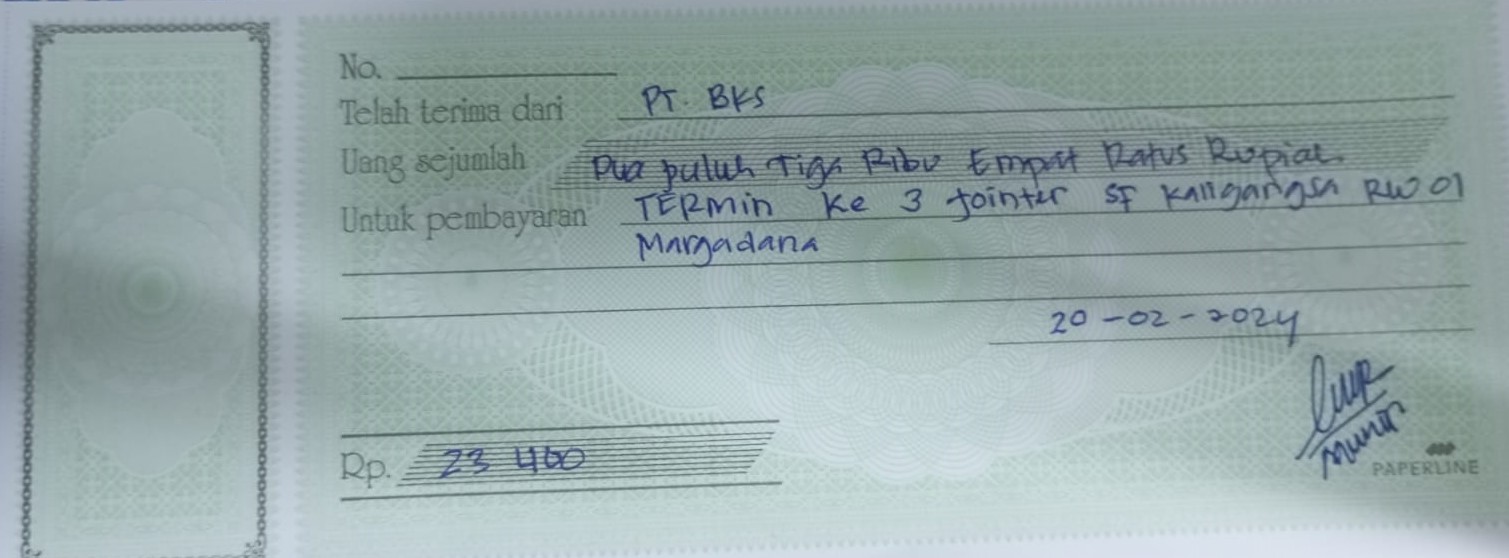 No.
Telah terima dari PT. BKS
Uang sejumlah Dua puluh Tiga Ribu Empat Ratus Rupiah
Untuk pembayaran TERMin Ke 3 Jointer SF Kaligangsa RW 01
Margadana
20-02-2024
Rp. 23 400
Munir
PAPERLINE